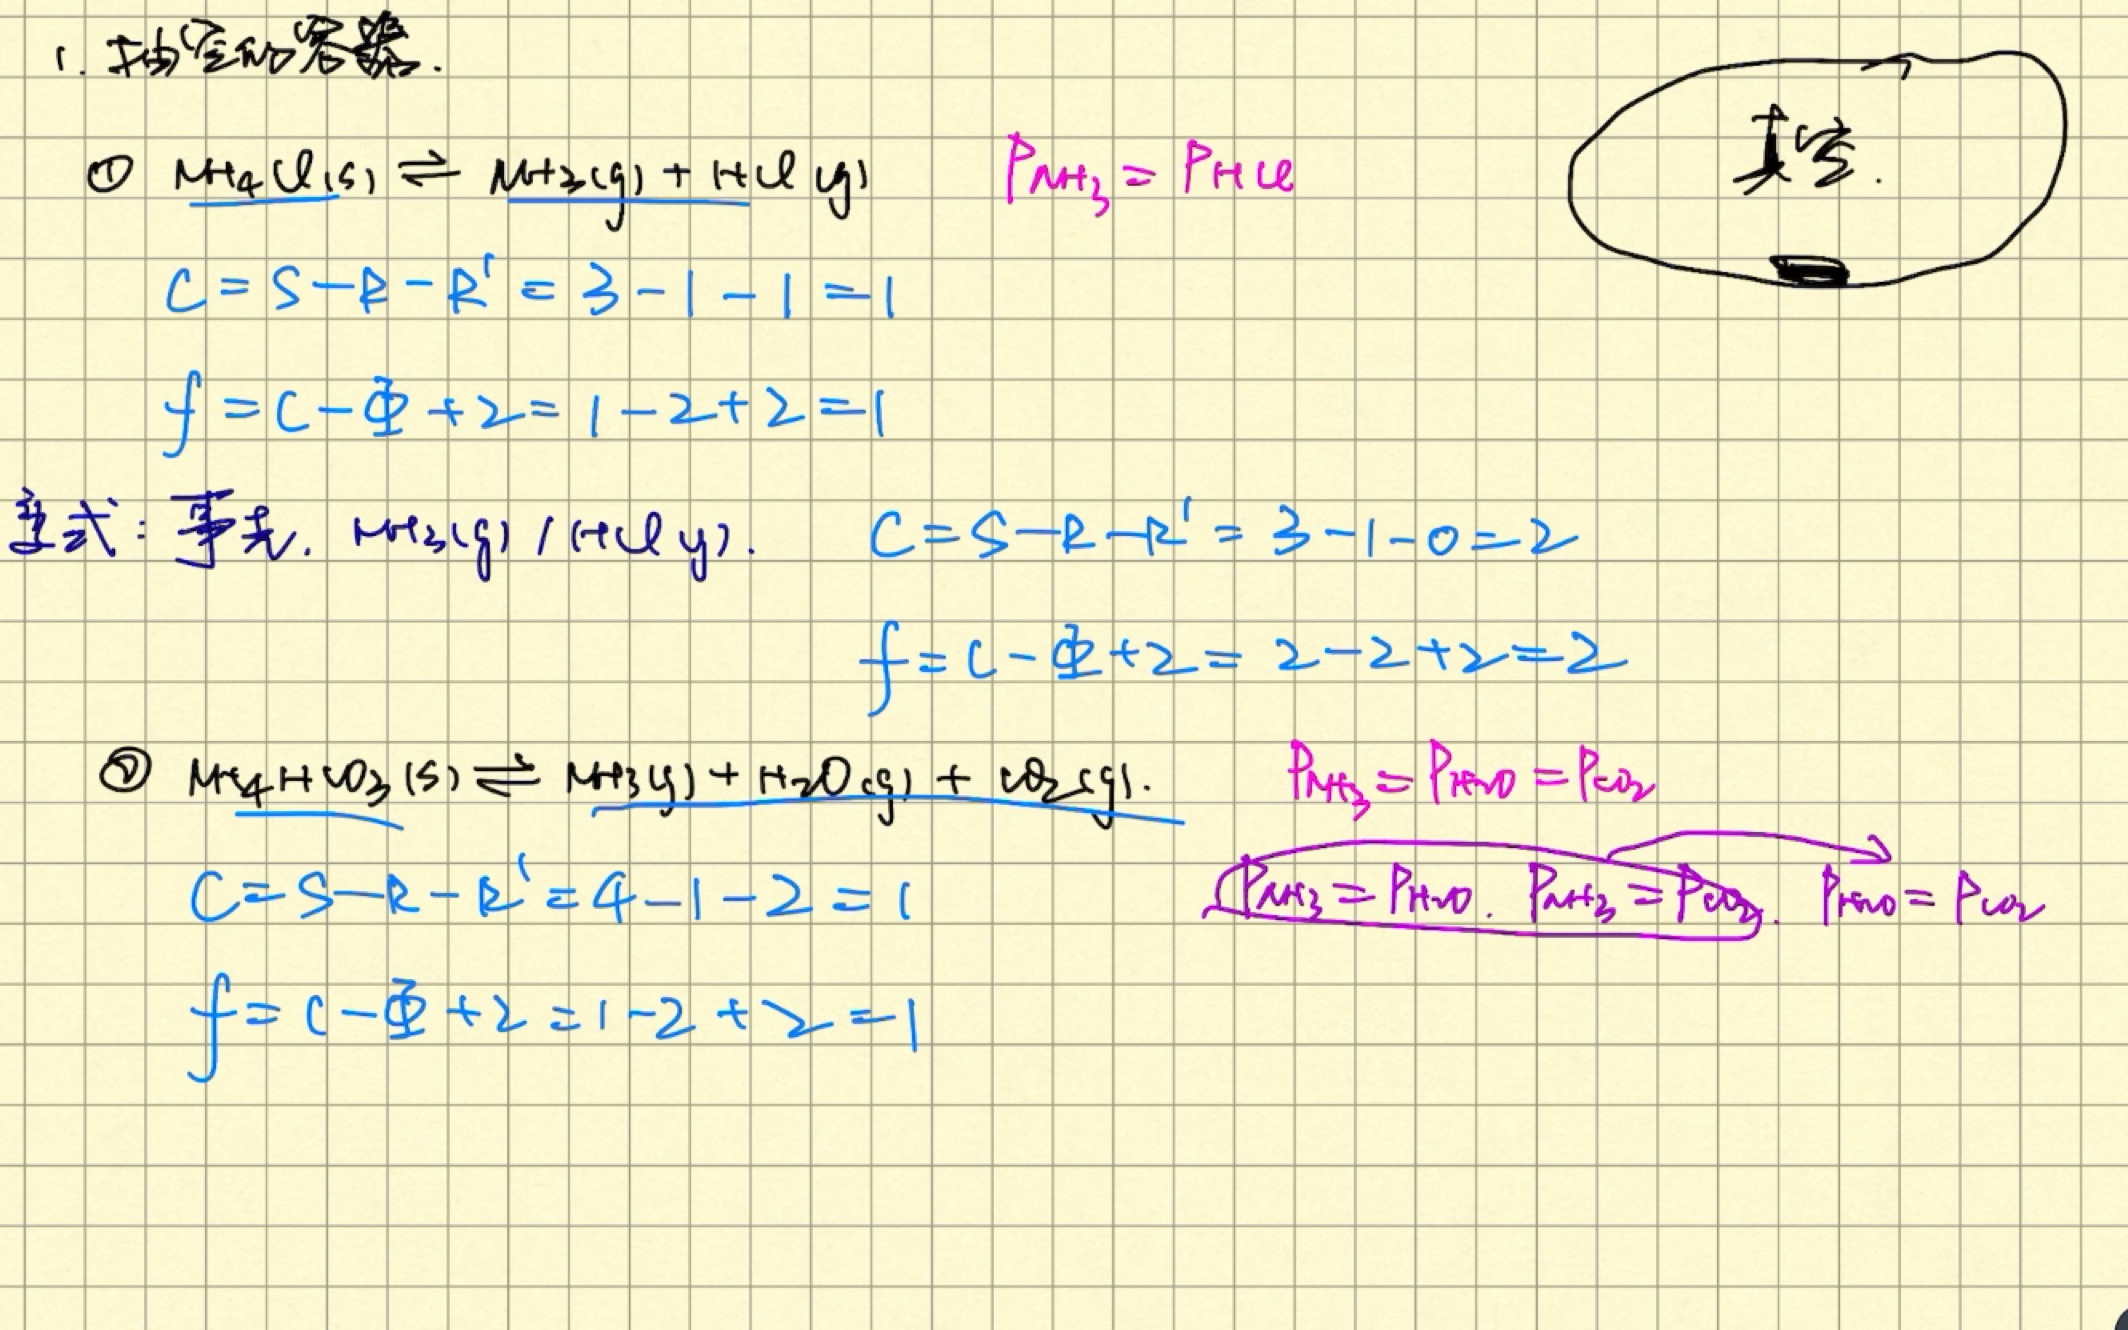 1. 抽空的容器.
真空.
① NH4Cl(s) ⇌ NH3(g) + HCl(g) PNH3 = PHCl
C = S - R - R' = 3 - 1 - 1 = 1
f = C - Φ + 2 = 1 - 2 + 2 = 1
变式: 事先. NH3(g) / HCl(g). C = S - R - R' = 3 - 1 - 0 = 2
f = C - Φ + 2 = 2 - 2 + 2 = 2
② NH4HCO3(s) ⇌ NH3(g) + H2O(g) + CO2(g). PNH3 = PH2O = PCO2
C = S - R - R' = 4 - 1 - 2 = 1 PNH3 = PH2O. PNH3 = PCO2. PH2O = PCO2
f = C - Φ + 2 = 1 - 2 + 2 = 1